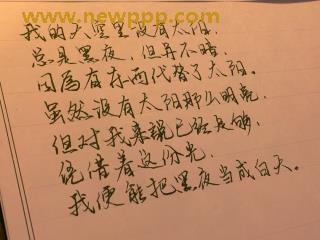 www.newppp.com
我的天空里没有太阳.
总是黑夜,但并不暗.
因为有东西代替了太阳。
虽然没有太阳那么明亮.
但对我来说已经足够.
凭借着这份光.
我便能把黑夜当成白天。